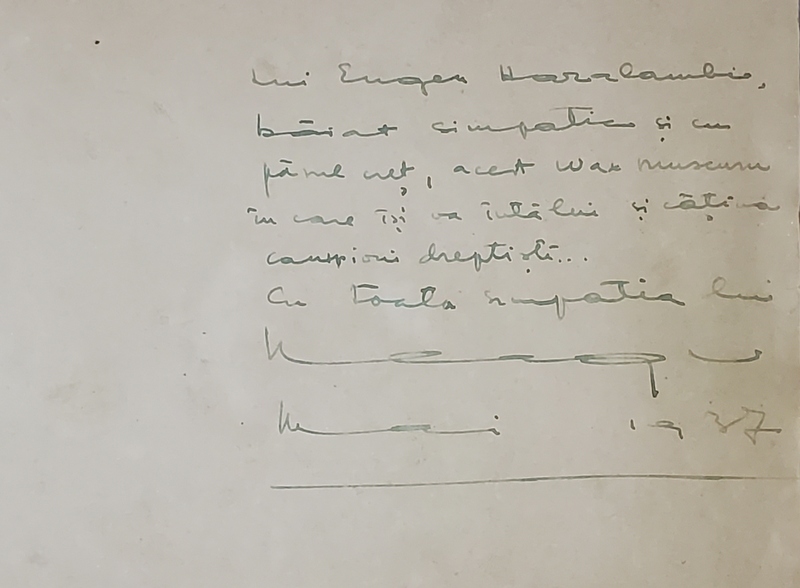 Lui Eugen Haralambie,
băiat simpatic și cu
părul creț, acest wax museum
în care își va întâlni și câțiva
campioni dreptiști...
Cu toată simpatia lui
Mai 1937